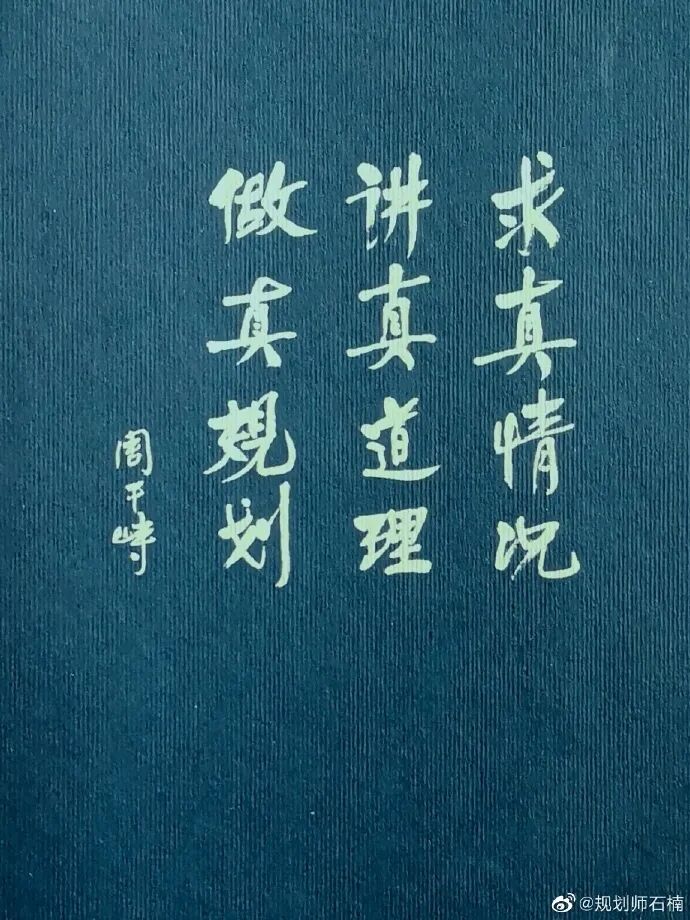 求真情况
讲真道理
做真规划
周干峙
@规划师石楠